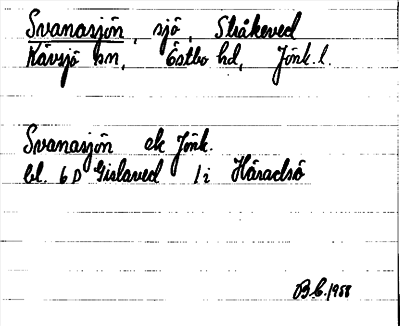 Svanasjön, sjö, Stråkeved
Kävsjö sn, Östbo hd, Jönk. l.
Svanasjön ek Jönk.
bl. 6D Gislaved 1i Häradsö
B.C. 1988